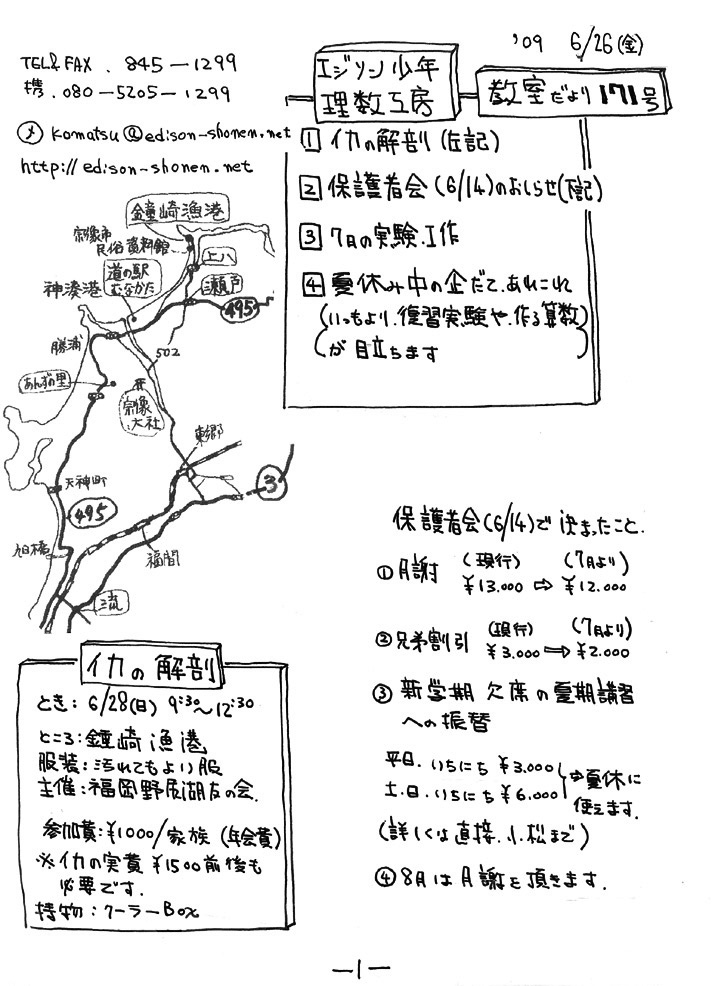 '09 6/26(金)
TEL&FAX. 845-1299
携. 080-5205-1299
メ komatsu@edison-shonen.net
http://edison-shonen.net
エジソン少年
理数工房
教室だより 171号
1 イカの解剖(左記)
2 保護者会(6/14)のおしらせ(下記)
3 7月の実験.工作
4 夏休み中の企だて.あれこれ
(いつもより.復習実験や.作る算数)
が目立ちます
鐘崎漁港
宗像市
民俗資料館
上八
道の駅
むなかた
神湊港
瀬戸
495
勝浦
502
あんずの里
宗像
大社
東郷
3
天神町
495
旭橋
福間
イカの解剖
とき: 6/28(日) 9:30〜12:30
ところ:鐘崎漁港
服装:汚れてもよい服
主催:福岡野辰湖友の会.
参加費:¥1000/家族(年会費)
※イカの実費 ¥1500前後も
必要です.
持物:クーラーBox
保護者会(6/14)で決まったこと.
①月謝 (現行) (7月より)
¥13.000 ⇨ ¥12.000
②兄弟割引 (現行) (7月より)
¥3.000 ⇨ ¥2.000
③ 新学期 欠席の夏期講習
への振替
平日.いちにち ¥3.000
土.日.いちにち ¥6.000
⇨夏休に
使えます.
(詳しくは直接.小松まで)
④8月は月謝を頂きます.
-1-